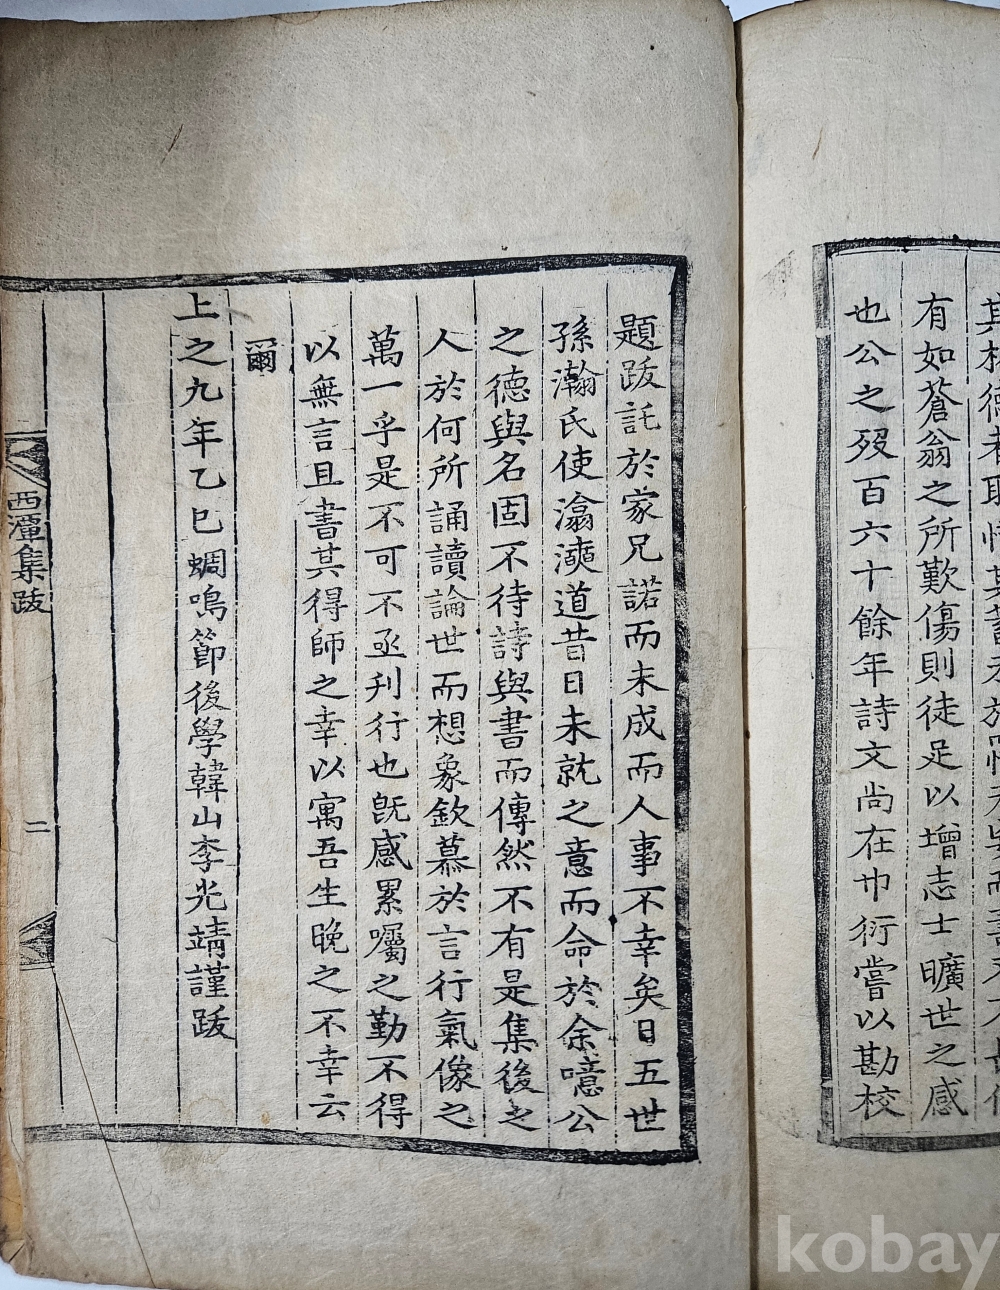 有如蒼翁之所歎傷則徒足以增志士曠世之感
也公之歿百六十餘年詩文尚在巾衍嘗以勘校
題跋託於家兄諾而未成而人事不幸矣日五世
孫瀚氏使滃㵧道昔日未就之意而命於余噫公
之德與名固不待詩與書而傳然不有是集後之
人於何所誦讀論世而想象欽慕於言行氣像之
萬一乎是不可不亟刋行也旣感累囑之勤不得
以無言且書其得師之幸以寓吾生晚之不幸云
爾
上之九年乙巳蜩鳴節後學韓山李光靖謹跋
西潭集跋
二
kobay